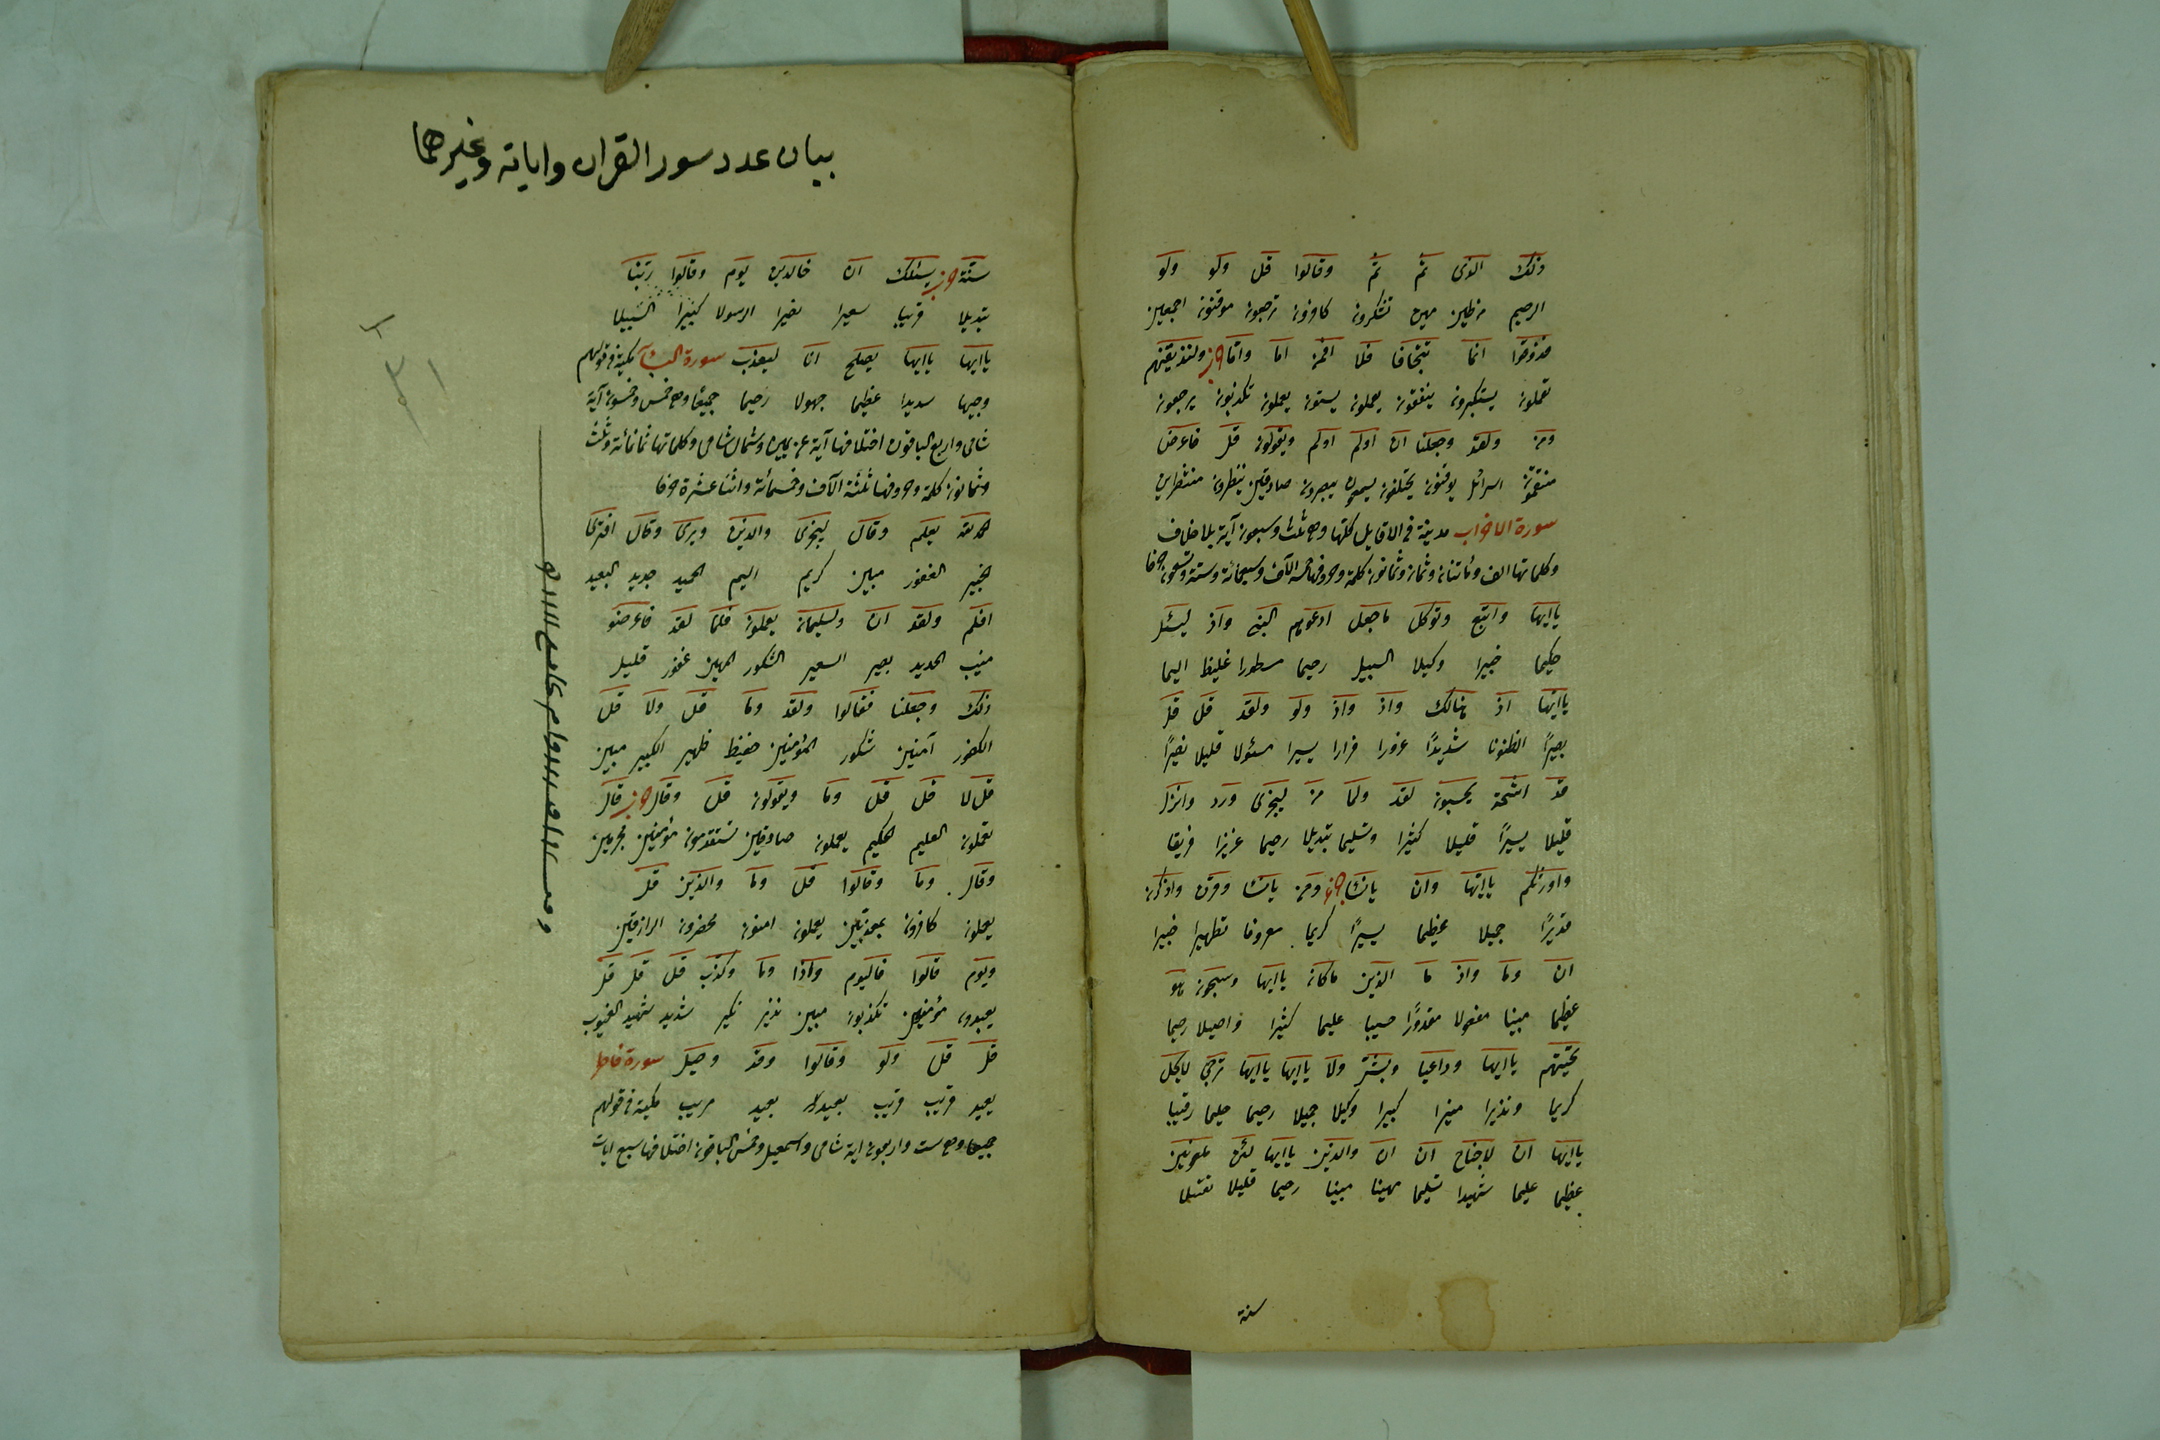 ذلك الذى ثم ثم وقالوا قل ولو ولو
الرحيم من طين مهين تشكرون كافرون ترجعون موقنون اجمعين
فذوقوا انما تتجافا فلا افمن اما واما ولنذيقنهم
تعملون يستكبرون ينفقون يعملون يستون يعملون تكذبون يرجعون
ومن ولقد وجعلنا ان اولم اولم ويقولون قل فاعرض
منتقمون اسرائل يوقنون يختلفون يسمعون يبصرون صادقين ينظرون منتظرين
سورة الاحزاب مدينة فى الاقاويل كلها وهى ثلث وسبعون آية بلا خلاف
وكلماتها الف ومائتان وثمان وثمانون كلمة وحروفها خمسة آلاف وسبعمائة وستة وتسعون حرفا
يا ايها واتبع وتوكل ما جعل ادعوهم النبى واذ ليسئل
حكيما خبيرا وكيلا السبيل رحيما مسطورا غليظا اليما
يا ايها اذ هنالك واذ واذ ولو ولقد قل قل
بصيرًا الظنونا شديدًا غرورا فرارا يسيرا مسئولا قليلا نصيرًا
قد اشحة يحسبون لقد ولما من ليجزى ورد وانزل
قليلا يسيرًا قليلا كثيرا وتسليما تبديلا رحيما عزيزا فريقا
واورثكم يا ايها وان يا نسا ومن يا نسا وقرن واذكرن
قديرًا جميلا عظيما يسيرًا كريما معروفا تطهيرا خبيرا
ان وما واذ ما الذين ما كان يا ايها وسبحوه هو
عظيما مبينا مفعولا مقدورًا حسيبا عليما كثيرا واصيلا رحيما
تحيتهم يا ايها وداعيا وبشر ولا يا ايها يا ايها ترجى لا يحل
كريما ونذيرا منيرا كبيرا وكيلا جميلا رحيما حليما رقيبا
يا ايها ان لا جناح ان ان والذين يا ايها لئن ملعونين
عظيما عليما شهيدا تسليما مهينا مبينا رحيما قليلا تقتيلا
سنة
بيان عدد سور القران واياته وغيرهما
سنة يسئلك ان خالدين يوم وقالوا ربنا
تبديلا قريبا سعيرا نصيرا الرسولا كبيرا السبيلا
يا ايها يا ايها يصلح انا ليعذب سورة السبا مكية فى قولهم
وجيها سديدا عظيما جهولا رحيما جميعًا وهى خمس وخمسون آية
شامى واربع الباقون اختلافها آية عن يمين وشمال شامى وكلماتها ثمانمائة وثلث
وثمانون كلمة وحروفها ثلثة الآف وخمسمائة واثنا عشرة حرفا
الحمد لله يعلم وقال ليجزى والذين ويرى وقال افترى
الخبير الغفور مبين كريم اليم الحميد جديد البعيد
افلم ولقد ان ولسليمان يعملون فلما لقد فاعرضو
منيب الحديد بصير السعير الشكور المهين غفور قليل
ذلك وجعلنا فقالوا ولقد وما قل ولا قل
الكفور آمنين شكور المؤمنين حفيظ ظهير الكبير مبين
قل لا قل قل وما ويقولون قل وقال قال
تعملون العليم الحكيم يعملون صادقين تستقدمون مؤمنين مجرمين
وقال وما وقالوا قل وما والذين قل
يعملون كافرون بمعذبين يعملون امنون محضرون الرازقين
ويوم قالوا فاليوم واذا وما وكذب قل قل قل
يعبدون مؤمنين تكذبون مبين نذير نكير شديد شهيد الغيوب
قل قل ولو وقالوا وقد وحيل سورة فاطر
يعيد قريب قريب بعيد بعيد مريب مكية فى قولهم
جميعا وهى ست واربعون اية شامى واسمعيل وخمس الباقون اختلافها سبع ايات